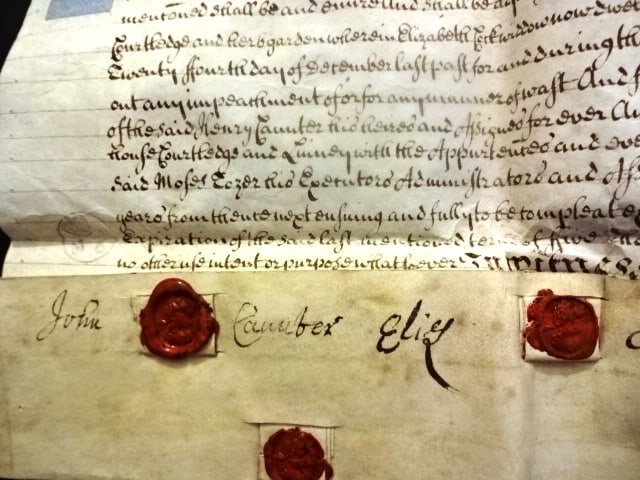 mentioned shall be and enure and shall be
Courtledge and herbgarden wherein Elizabeth Cock widdow now dwe
Twenty ffourth day of December last past for and during th
out any impeachment of or for any manner of wast And
of the said Henry Caunter his heires and Assignes for ever
house Courtledge and with the Appurtences and eve
said Moses Tozer his Executors Administrators and Ass
years from thence next ensuing and fully to be compleat e
Expiration of the said last mentioned terme of ffive
no other use intent or purpose whatsoever In witness
John Caunter Elis